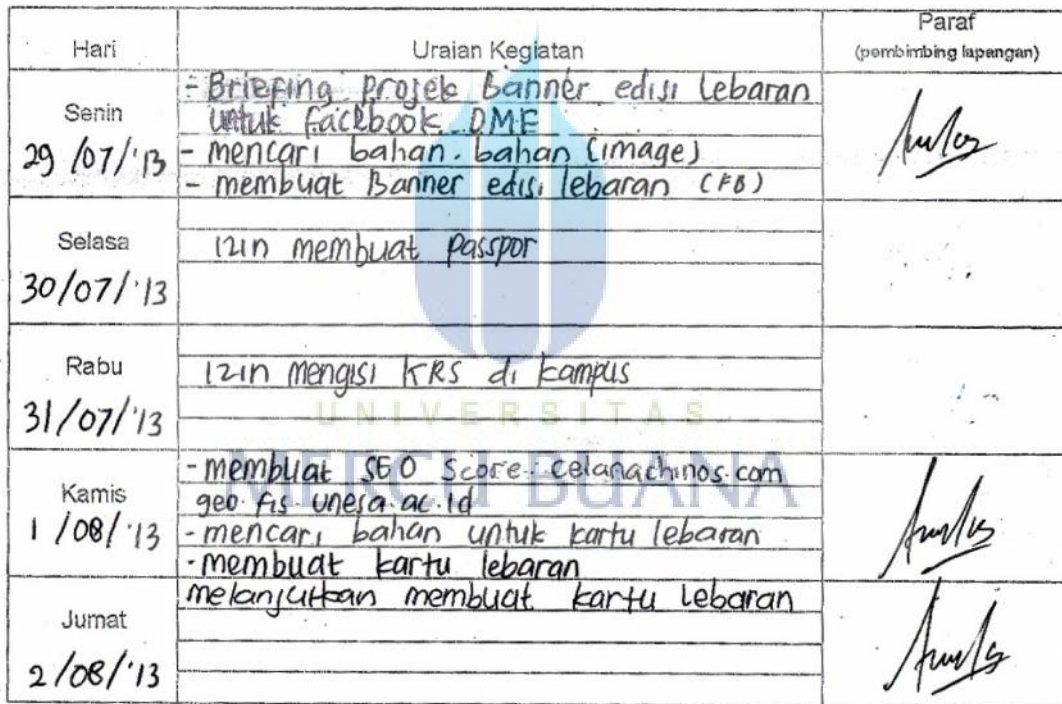 Hari
Uraian Kegiatan
Paraf
(pembimbing lapangan)
Senin
29/07/'13
- Briefing projek Banner edisi Lebaran
untuk facebook DME
- mencari bahan-bahan (image)
- membuat Banner edisi lebaran (FB)
Selasa
30/07/'13
izin membuat passpor
Rabu
31/07/'13
izin mengisi KRS di kampus
UNIVERSITAS
MERCU BUANA
Kamis
1/08/'13
- membuat SEO Score celanachinos.com
geo.fis.unesa.ac.id
- mencari bahan untuk kartu lebaran
- membuat kartu lebaran
Jumat
2/08/'13
melanjutkan membuat kartu lebaran